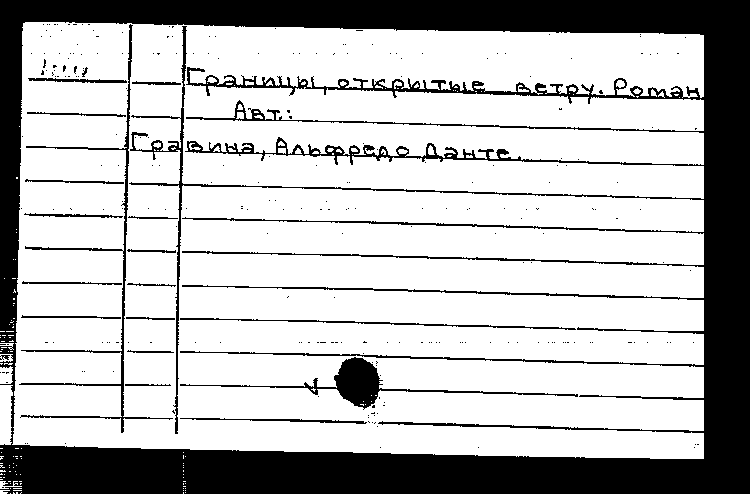 Границы, открытые ветру. Роман
Авт.:
Гравина, Альфредо Данте.